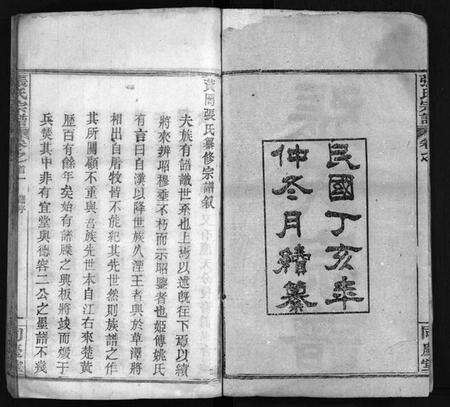 張氏宗譜
民國丁亥年
仲冬月續纂
同慶堂
黃岡張氏纂修宗譜叙
夫族有譜識世系也上朽以遠旣往在下以續
將來辨昭穆垂不朽而示昭鑒者也姬傳姚氏
有言曰自漢以降世族入湮王者興於草澤將
相出自屠牧皆不能紀其先世然則族譜之作
其所關顧不重與吾族先世本自江右來楚黃
歷百有餘年矣始有譜牒之興板將竣而燬于
兵燹其中非有宜堂與德容二公之墨譜不幾
張氏宗譜
卷之首
同慶堂